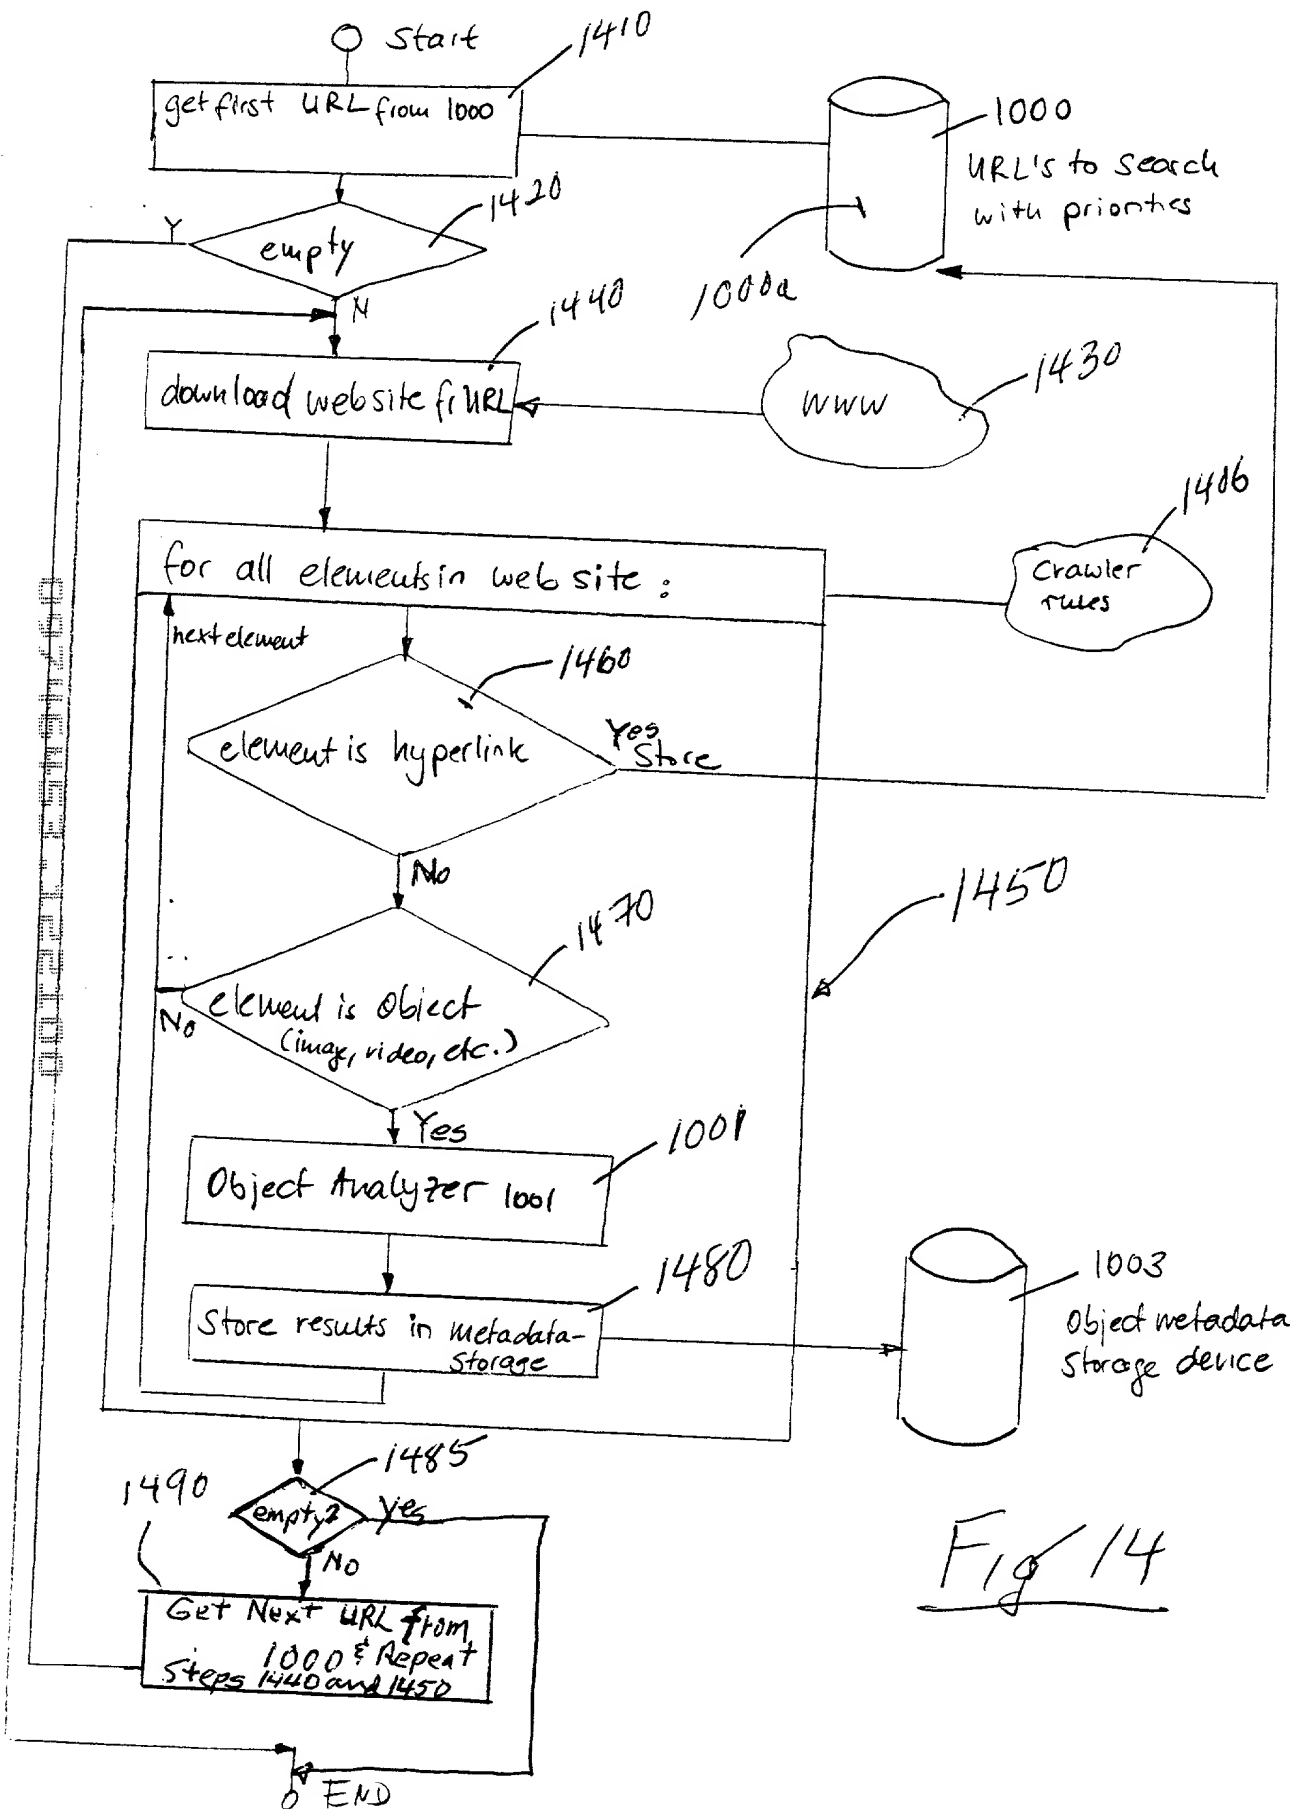 Start
1410
get first URL from 1000
1000
URL's to search
with priorities
1420
Y
empty
1000a
N
1440
1430
download website fr URL
WWW
1406
for all elements in web site :
Crawler
rules
next element
1460
element is hyperlink
Yes
Store
No
1450
1470
element is Object
(image, video, etc.)
No
Yes
1001
Object Analyzer 1001
1480
1003
Store results in metadata-
storage
Object metadata
Storage device
1485
1490
empty?
yes
No
Get Next URL from
1000 & Repeat
Steps 1440 and 1450
Fig 14
END